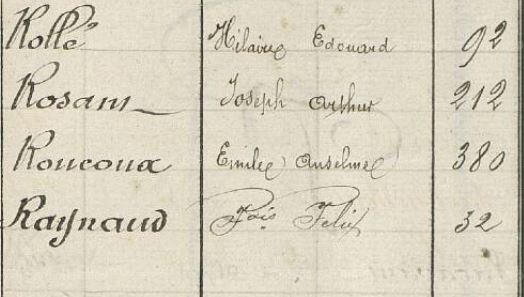 Rollé Hilaire Edouard 92
Rosans Joseph Arthur 212
Roucoux Emile Anselme 380
Raynaud Fois Felix 32